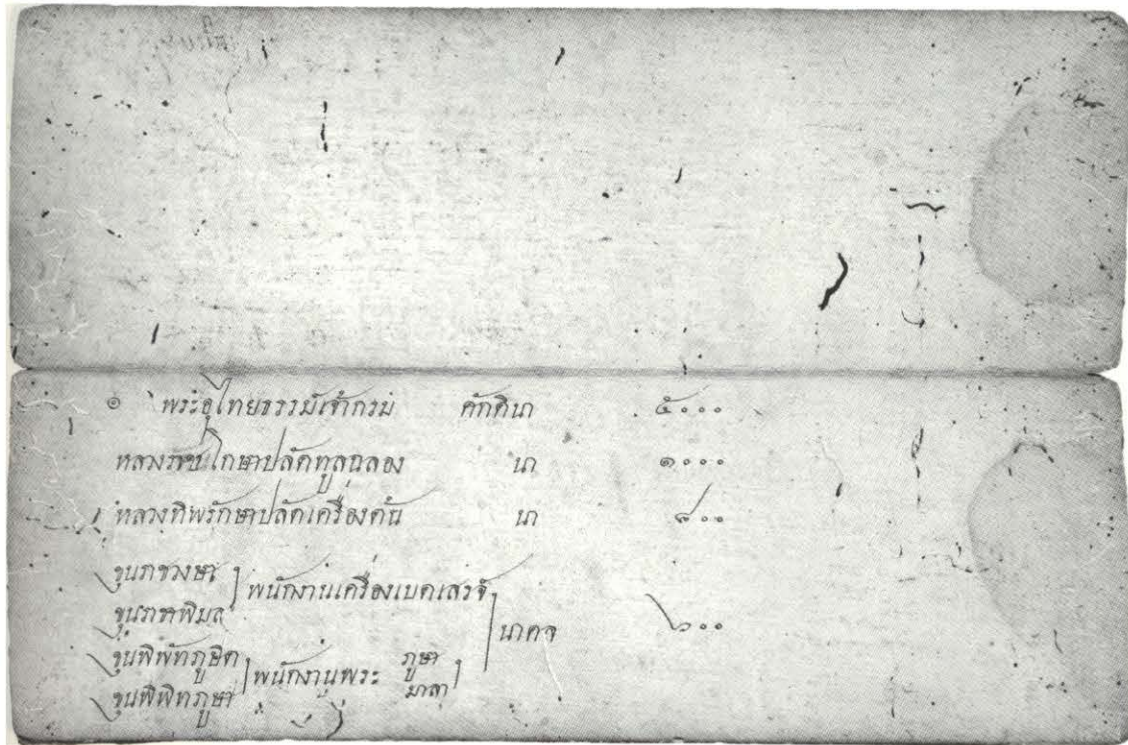 ๏ พระอุไทยธรรมเจ้ากรม ศักดินา ๕๐๐๐
หลวงราชโกษาปลัดทูลฉลอง นา ๑๐๐๐
หลวงทิพรักษาปลัดเครื่องต้น นา ๘๐๐
ขุนภูษา
ขุนพิมล
พนักงานเครื่องเบดเสรจ์
ขุนพิพัทภูษิต
ขุนพิพิทภูษา
พนักงานพระ ภูษา
มาลา
นาคล ๖๐๐